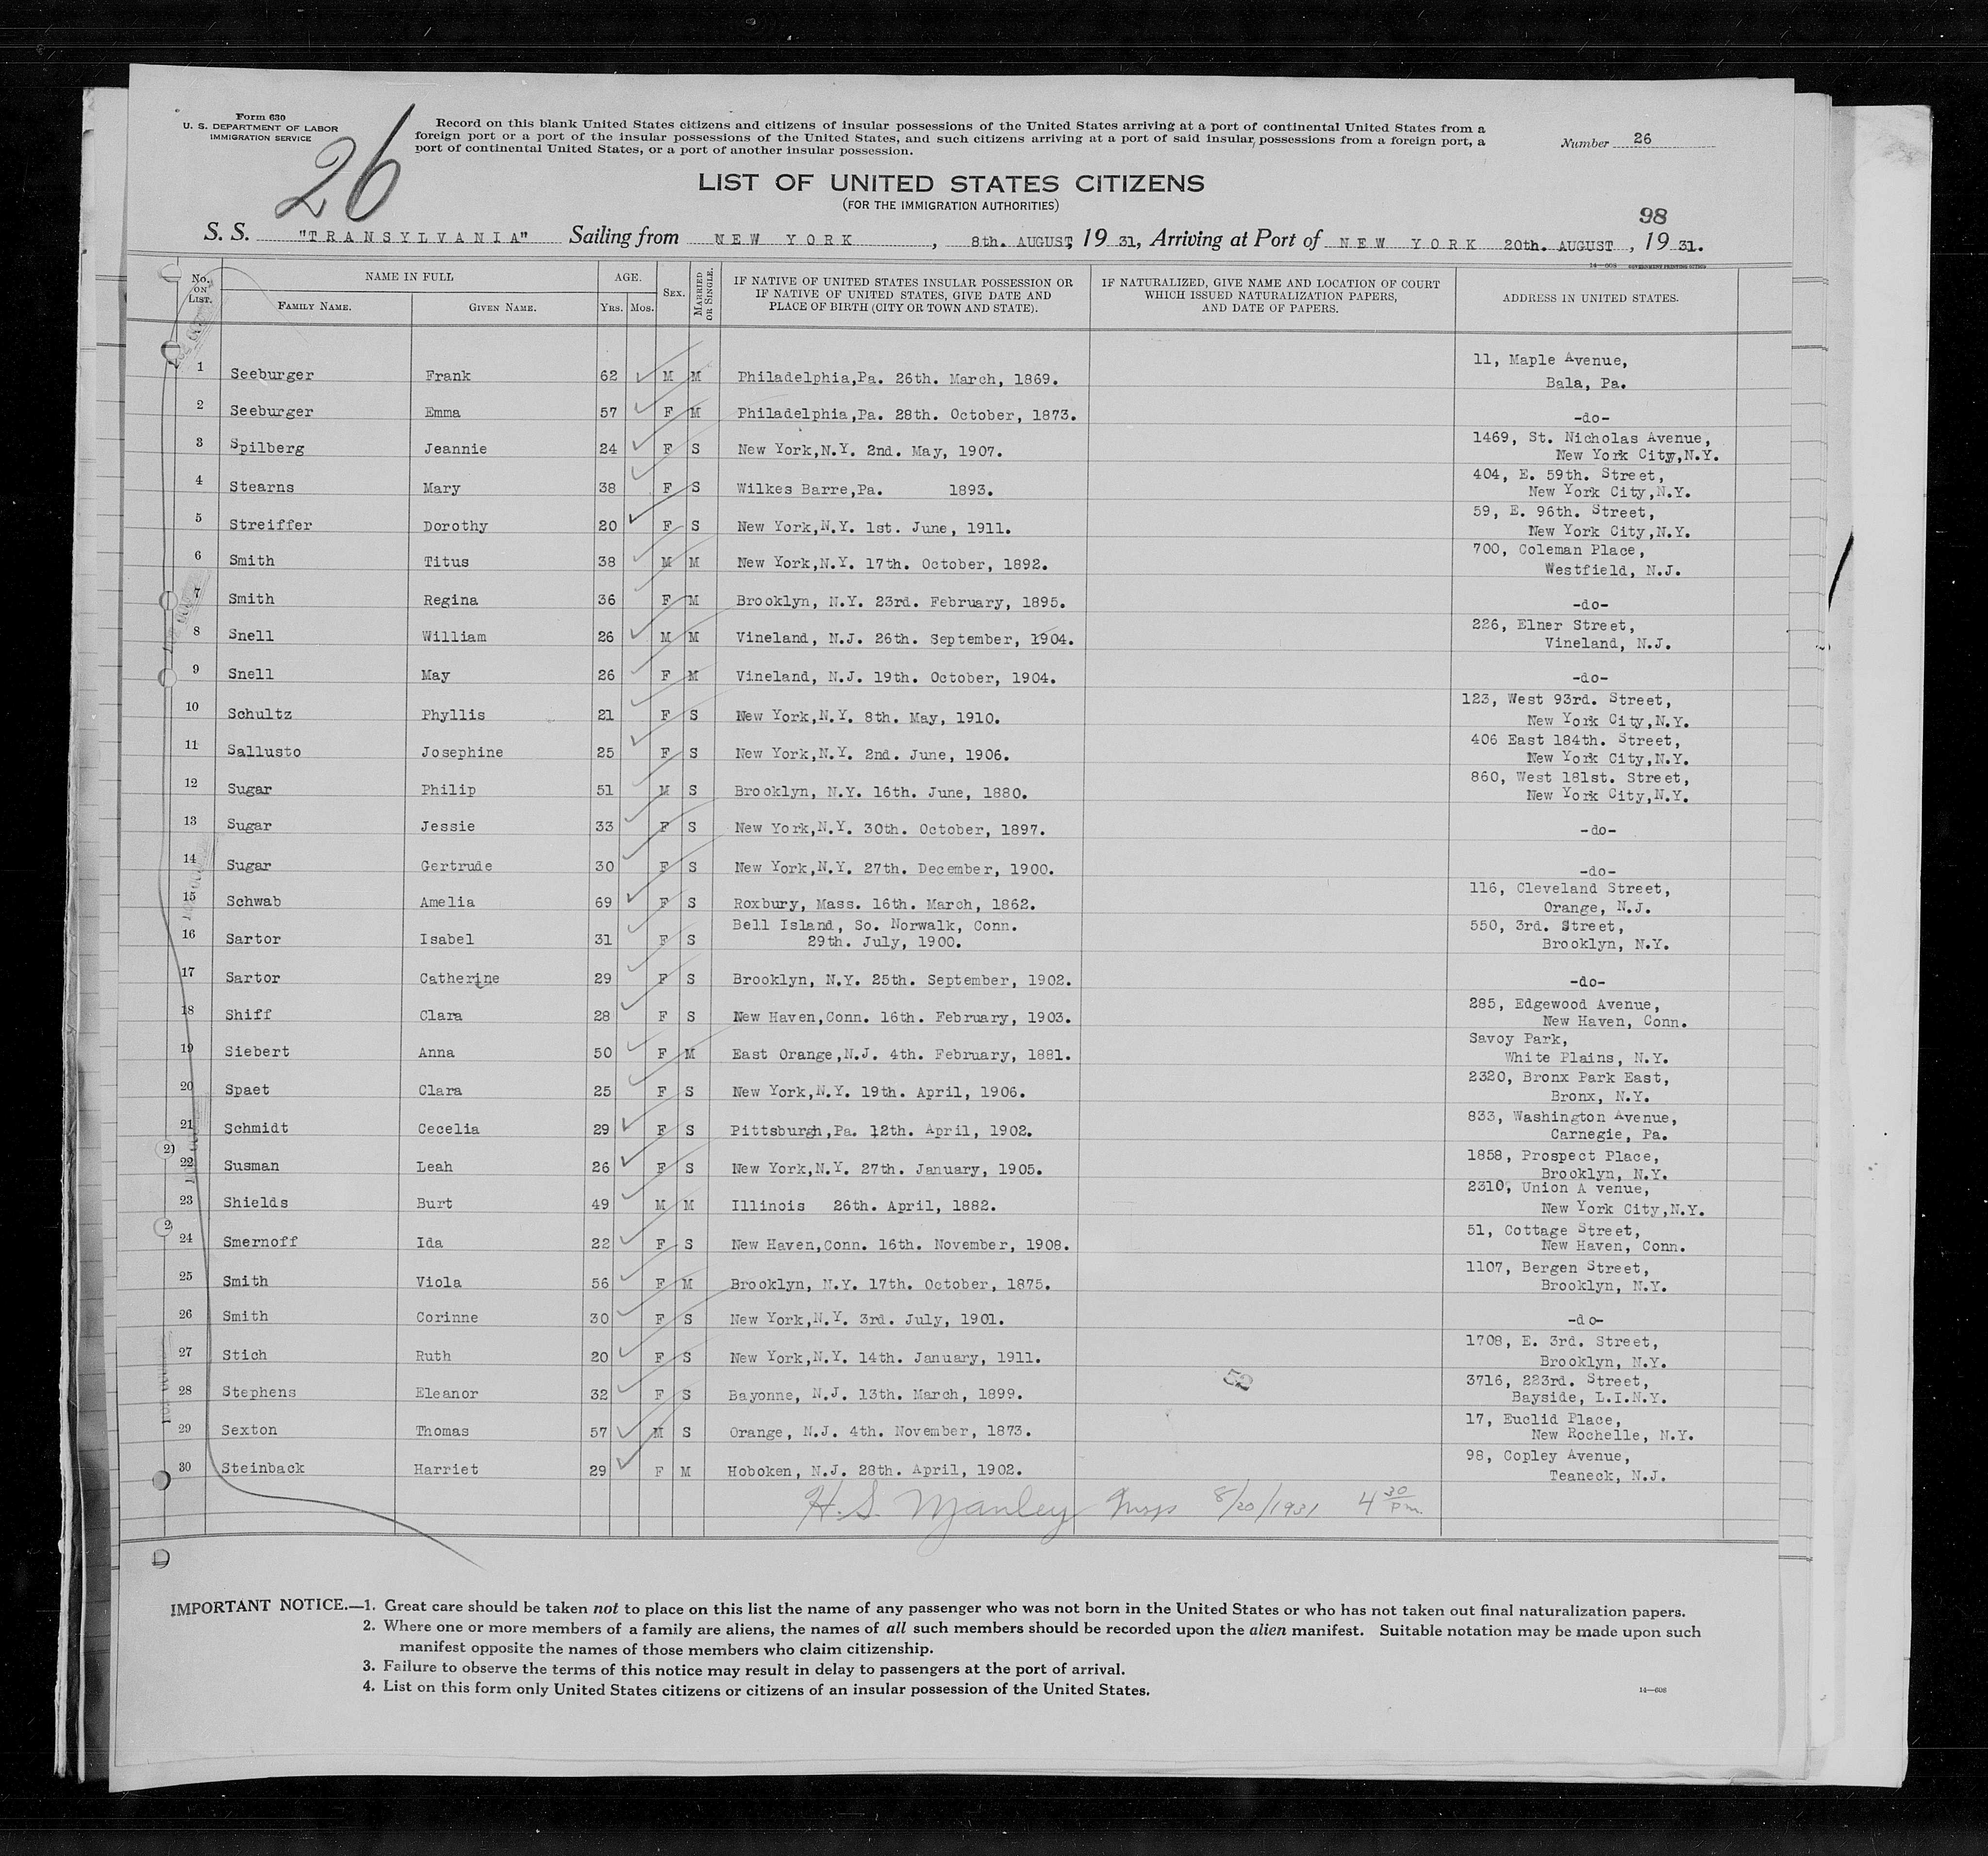 Form 630
U. S. DEPARTMENT OF LABOR
IMMIGRATION SERVICE
26
Record on this blank United States citizens and citizens of insular possessions of the United States arriving at a port of continental United States from a
foreign port or a port of the insular possessions of the United States, and such citizens arriving at a port of said insular possessions from a foreign port, a
port of continental United States, or a port of another insular possession.
Number 26
LIST OF UNITED STATES CITIZENS
(FOR THE IMMIGRATION AUTHORITIES)
98
S. S. "TRANSYLVANIA" Sailing from NEW YORK, 8th. AUGUST, 19 31, Arriving at Port of NEW YORK 20th. AUGUST, 19 31.
14—608 GOVERNMENT PRINTING OFFICE
No. ON LIST. NAME IN FULL AGE. SEX. MARRIED OR SINGLE. IF NATIVE OF UNITED STATES INSULAR POSSESSION OR IF NATIVE OF UNITED STATES, GIVE DATE AND PLACE OF BIRTH (CITY OR TOWN AND STATE). IF NATURALIZED, GIVE NAME AND LOCATION OF COURT WHICH ISSUED NATURALIZATION PAPERS, AND DATE OF PAPERS. ADDRESS IN UNITED STATES.
FAMILY NAME. GIVEN NAME. YRS. MOS.
1 Seeburger Frank 62 M M Philadelphia,Pa. 26th. March, 1869. 11, Maple Avenue,
Bala, Pa.
2 Seeburger Emma 57 F M Philadelphia,Pa. 28th. October, 1873. -do-
3 Spilberg Jeannie 24 F S New York,N.Y. 2nd. May, 1907. 1469, St. Nicholas Avenue,
New York City,N.Y.
4 Stearns Mary 38 F S Wilkes Barre,Pa. 1893. 404, E. 59th. Street,
New York City,N.Y.
5 Streiffer Dorothy 20 F S New York,N.Y. 1st. June, 1911. 59, E. 96th. Street,
New York City,N.Y.
6 Smith Titus 38 M M New York,N.Y. 17th. October, 1892. 700, Coleman Place,
Westfield, N.J.
7 Smith Regina 36 F M Brooklyn, N.Y. 23rd. February, 1895. -do-
8 Snell William 26 M M Vineland, N.J. 26th. September, 1904. 226, Elner Street,
Vineland, N.J.
9 Snell May 26 F M Vineland, N.J. 19th. October, 1904. -do-
10 Schultz Phyllis 21 F S New York,N.Y. 8th. May, 1910. 123, West 93rd. Street,
New York City,N.Y.
11 Sallusto Josephine 25 F S New York,N.Y. 2nd. June, 1906. 406 East 184th. Street,
New York City,N.Y.
12 Sugar Philip 51 M S Brooklyn, N.Y. 16th. June, 1880. 860, West 181st. Street,
New York City,N.Y.
13 Sugar Jessie 33 F S New York,N.Y. 30th. October, 1897. -do-
14 Sugar Gertrude 30 F S New York,N.Y. 27th. December, 1900. -do-
15 Schwab Amelia 69 F S Roxbury, Mass. 16th. March, 1862. 116, Cleveland Street,
Orange, N.J.
16 Sartor Isabel 31 F S Bell Island, So. Norwalk, Conn. 550, 3rd. Street,
29th. July, 1900. Brooklyn, N.Y.
17 Sartor Catherine 29 F S Brooklyn, N.Y. 25th. September, 1902. -do-
18 Shiff Clara 28 F S New Haven,Conn. 16th. February, 1903. 285, Edgewood Avenue,
New Haven, Conn.
19 Siebert Anna 50 F M East Orange,N.J. 4th. February, 1881. Savoy Park,
White Plains, N.Y.
20 Spaet Clara 25 F S New York,N.Y. 19th. April, 1906. 2320, Bronx Park East,
Bronx, N.Y.
21 Schmidt Cecelia 29 F S Pittsburgh,Pa. 12th. April, 1902. 833, Washington Avenue,
Carnegie, Pa.
22 Susman Leah 26 F S New York,N.Y. 27th. January, 1905. 1858, Prospect Place,
Brooklyn, N.Y.
23 Shields Burt 49 M M Illinois 26th. April, 1882. 2310, Union A venue,
New York City,N.Y.
24 Smernoff Ida 22 F S New Haven,Conn. 16th. November, 1908. 51, Cottage Street,
New Haven, Conn.
25 Smith Viola 56 F M Brooklyn, N.Y. 17th. October, 1875. 1107, Bergen Street,
Brooklyn, N.Y.
26 Smith Corinne 30 F S New York,N.Y. 3rd. July, 1901. -do-
27 Stich Ruth 20 F S New York,N.Y. 14th. January, 1911. 1708, E. 3rd. Street,
Brooklyn, N.Y.
28 Stephens Eleanor 32 F S Bayonne, N.J. 13th. March, 1899. 3716, 223rd. Street,
Bayside, L.I.N.Y.
29 Sexton Thomas 57 M S Orange, N.J. 4th. November, 1873. 17, Euclid Place,
New Rochelle, N.Y.
30 Steinback Harriet 29 F M Hoboken, N.J. 28th. April, 1902. 98, Copley Avenue,
Teaneck, N.J.
52
H. S. Manley Insp 8/20/1931 4 30 pm.
IMPORTANT NOTICE.—1. Great care should be taken not to place on this list the name of any passenger who was not born in the United States or who has not taken out final naturalization papers.
2. Where one or more members of a family are aliens, the names of all such members should be recorded upon the alien manifest. Suitable notation may be made upon such
manifest opposite the names of those members who claim citizenship.
3. Failure to observe the terms of this notice may result in delay to passengers at the port of arrival.
4. List on this form only United States citizens or citizens of an insular possession of the United States.
14—608